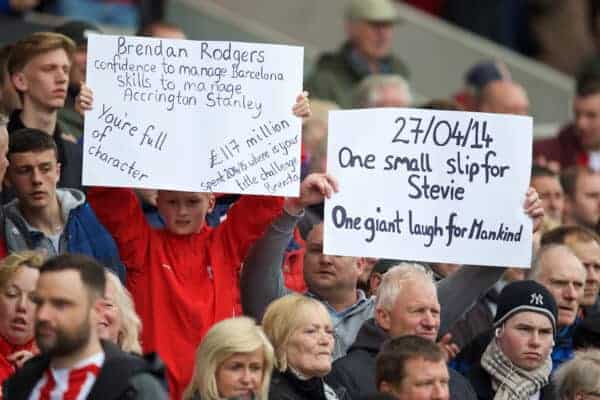 Brendan Rodgers
confidence to manage Barcelona
skills to manage
Accrington Stanley
You're full
of
character
£117 million
spent 2014/15 where is your
little challenge
Brenda
27/04/14
One small slip for
Stevie
One giant laugh for Mankind
NY